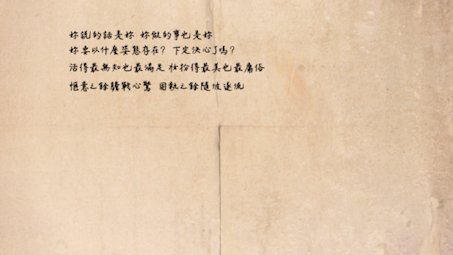 妳說的話是妳 妳做的事也是妳
妳要以什麼姿態存在？ 下定決心了嗎？
活得最無知也最滿足 妝扮得最美也最庸俗
愜意之餘膽戰心驚 固執之餘隨波逐流